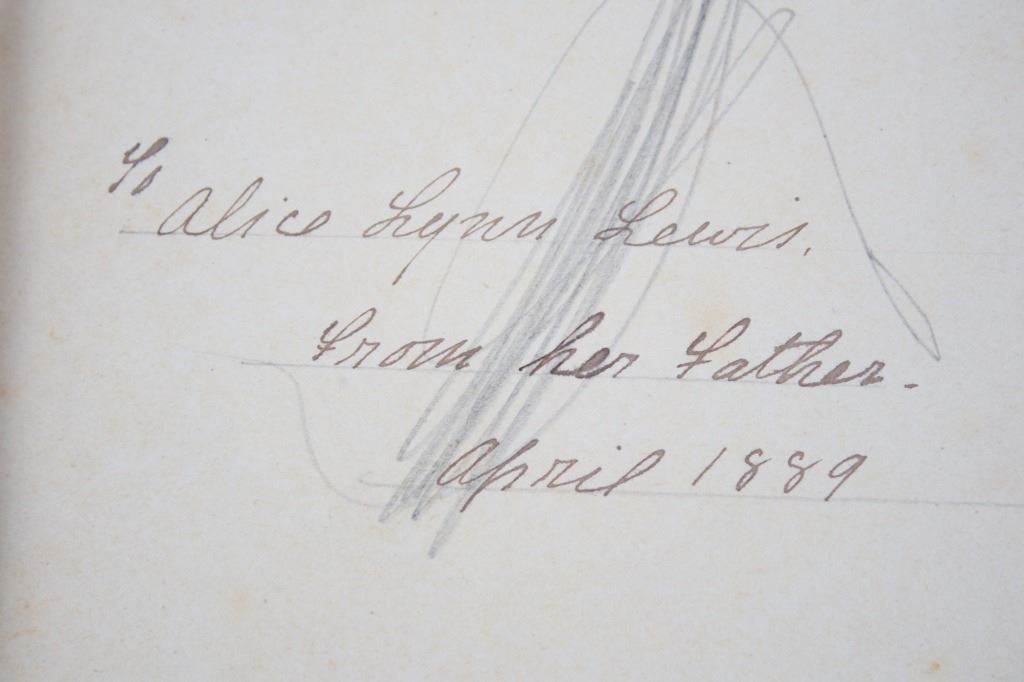 To
Alice Lynn Lewis.
From her Father.
April 1889